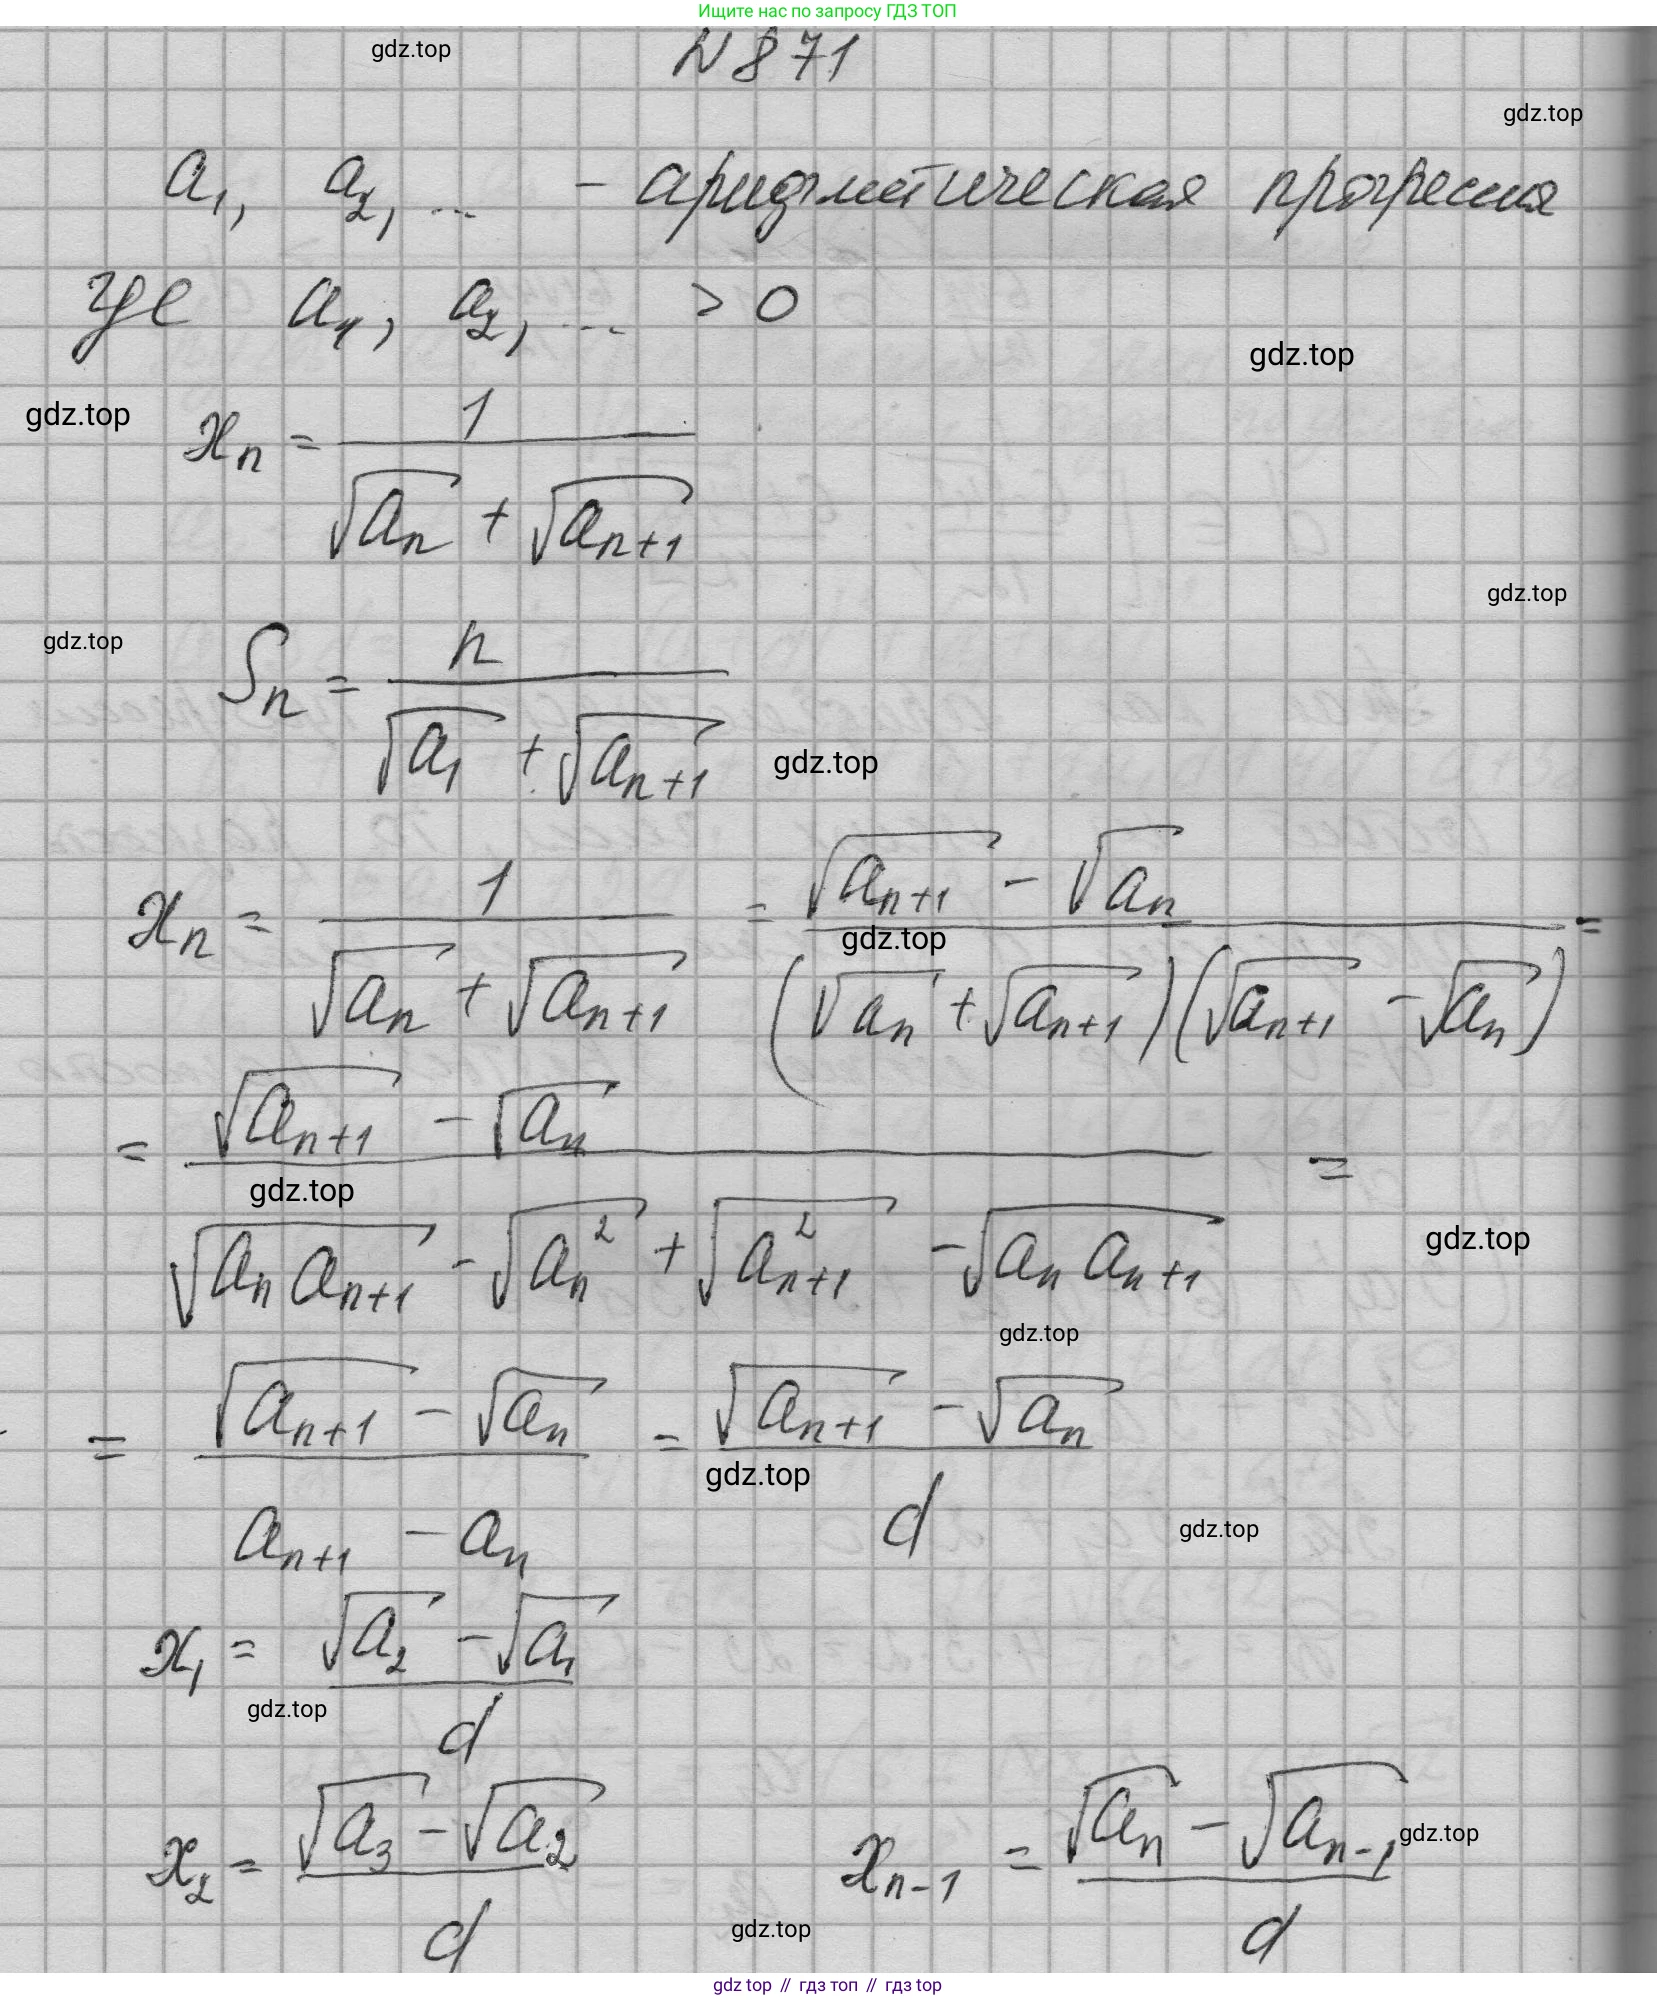 Ищите нас по запросу ГДЗ ТОП
gdz.top
N 871
gdz.top
a₁, a₂, ... – арифметическая прогрессия
где a₁, a₂, ... > 0
gdz.top
gdz.top
xₙ = 1 / (√aₙ + √aₙ₊₁)
gdz.top
gdz.top
Sₙ = n / (√a₁ + √aₙ₊₁)
gdz.top
xₙ = 1 / (√aₙ + √aₙ₊₁) = (√aₙ₊₁ - √aₙ) / ((√aₙ + √aₙ₊₁)(√aₙ₊₁ - √aₙ)) =
gdz.top
= (√aₙ₊₁ - √aₙ) / (√(aₙaₙ₊₁) - √(aₙ²) + √(aₙ₊₁²) - √(aₙaₙ₊₁)) =
gdz.top
gdz.top
gdz.top
= (√aₙ₊₁ - √aₙ) / (aₙ₊₁ - aₙ) = (√aₙ₊₁ - √aₙ) / d
gdz.top
gdz.top
x₁ = (√a₂ - √a₁) / d
gdz.top
x₂ = (√a₃ - √a₂) / d xₙ₋₁ = (√aₙ - √aₙ₋₁) / d
gdz.top
gdz.top
gdz top // гдз топ // гдз top